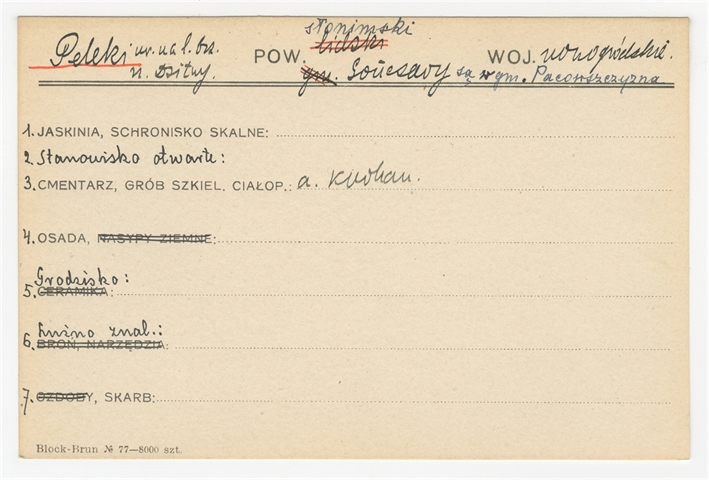 słonimski
Peleki ur. na l. brz. POW. lidzki WOJ. nowogródzkie.
n. Dzitwy. gm. Gonczary są w gm. Pacowszczyzna
1. JASKINIA, SCHRONISKO SKALNE:
2. Stanowisko otwarte:
3. CMENTARZ, GRÓB SZKIEL. CIAŁOP.: a. Kurhan.
4. OSADA, NASYPY ZIEMNE:
Grodzisko:
5. CERAMIKA:
Luźno znal.:
6. BROŃ, NARZĘDZIA:
7. OZDOBY, SKARB:
Block-Brun № 77—8000 szt.